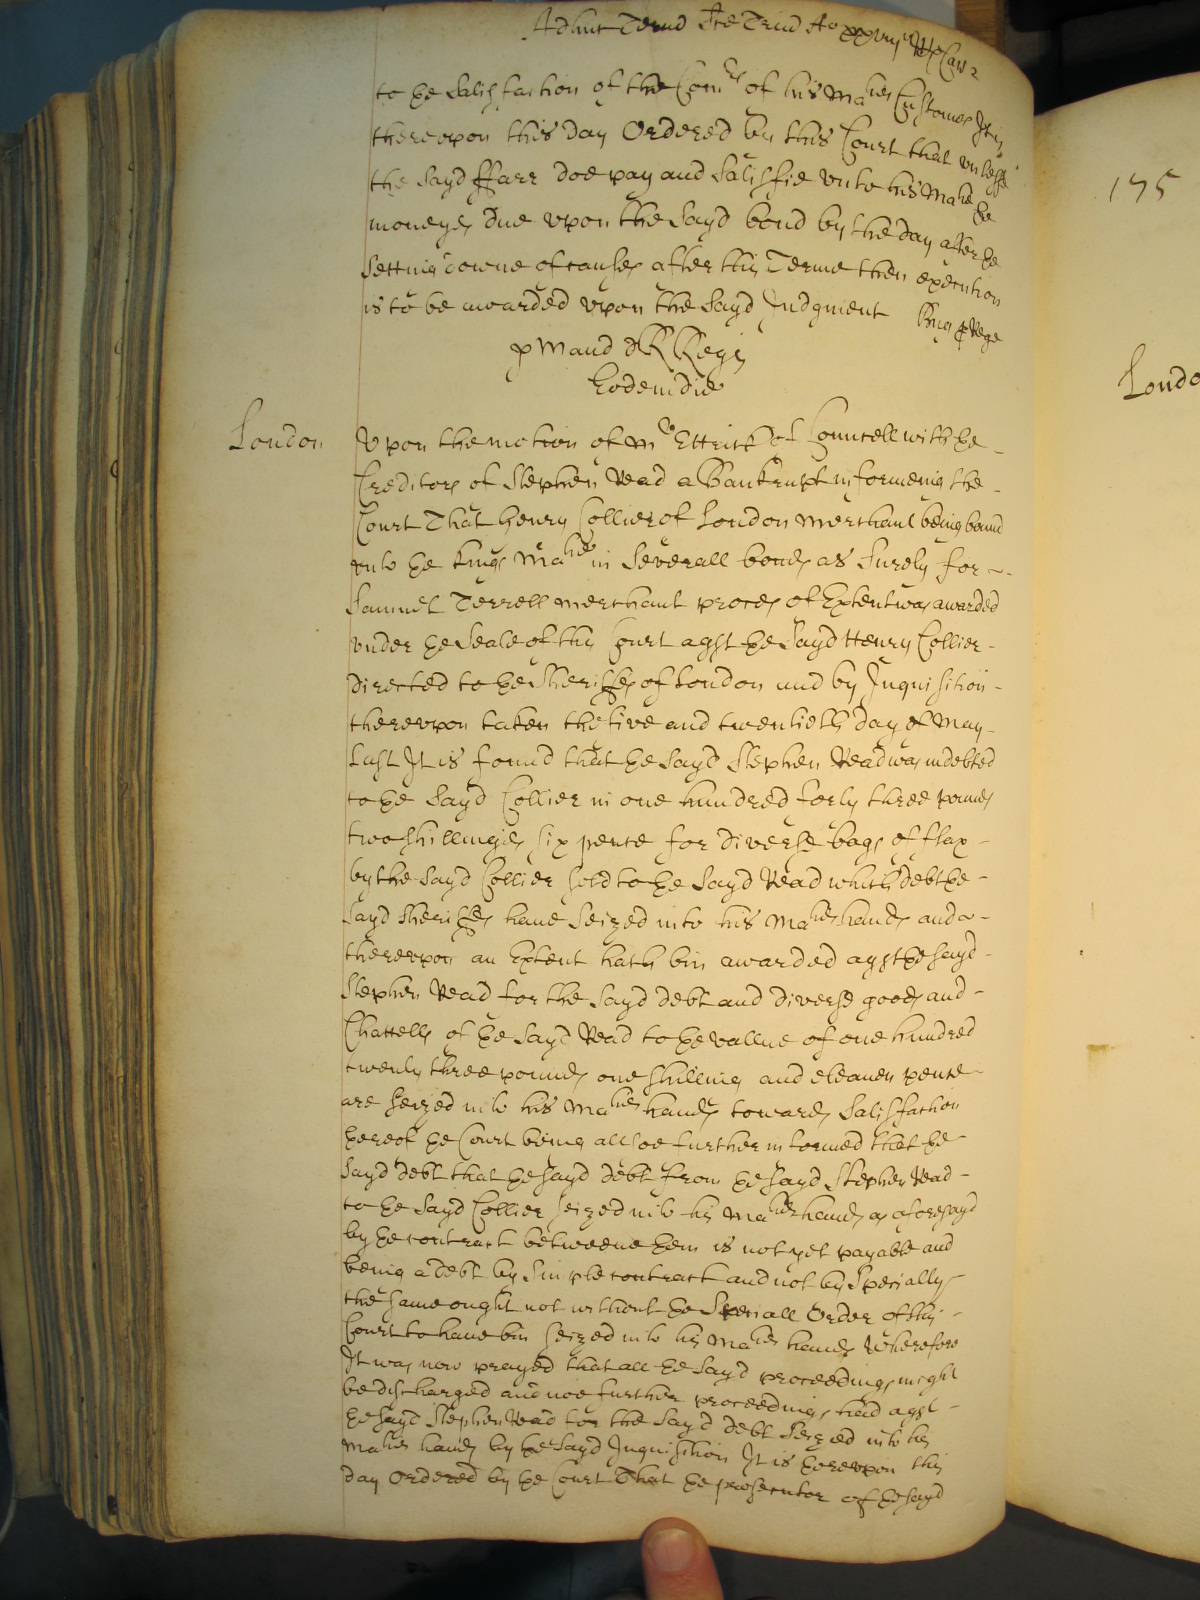 Adhuc Termd Ste Trind Ao xxviij
to ye satisfaction of the Comrs of his Maties Customes It is
thereupon this day Ordered by this Court that unlesse
the sayd ffarr doe pay and satisfie unto his Matie ye
moneyes due upon the sayd bond by the day after ye
setting downe of causes after this Terme then execution
is to be awarded upon the sayd Judgment
p Mand dR Regis
Eodem die
London
Upon the motion of Mr Ettrick of Councell with ye
Creditors of Stephen Read a Bankrupt informeing the
Court That Henry Collier of London Merchant being bound
unto ye Kings Matie in severall bonds as surety for
Samuel Terrell merchant proces of Extent was awarded
under ye Seale of this Court agst ye sayd Henry Collier
directed to ye Sheriffes of London and by Inquisition
thereupon taken the five and twentieth day of May
last It is found that ye sayd Stephen Read was indebted
to ye sayd Collier in one hundred forty three pounds
two shillings six pence for diverse bags of flax
by the sayd Collier sold to ye sayd Read which debt ye
sayd Sheriffes have seized into his Maties hands and
thereupon an Extent hath bin awarded agst ye sayd
Stephen Read for the sayd debt and diverse goods and
Chattells of ye sayd Read to ye vallue of one hundred
twenty three pounds one shilling and eleaven pence
are seized into his Maties hands towards satisfaction
yereof ye Court being allsoe further informed that ye
sayd debt that ye sayd debt from ye sayd Stephen Read
to ye sayd Collier seized into his Maties hands as aforesayd
by ye contract betweene yem is not yet payable and
being a debt by simple contract and not by Specialty
the same ought not without ye Speciall Order of this
Court to have bin seized into his Maties hands Wherefore
It was now prayed that all ye sayd proceedings might
be discharged and noe further proceedings had agst
ye sayd Stephen Read for the sayd debt seized into his
Maties hands by ye sayd Inquisition It is yereupon this
day Ordered by ye Court That ye prosecutor of ye sayd
175
Londo